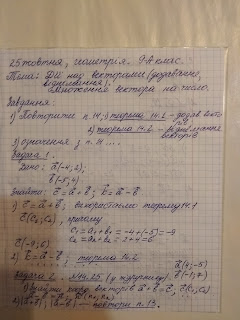 25 жовтня, геометрія. 9-А клас.
Тема: Дії над векторами (додавання,
віднімання). Множення вектора на число.
Завдання:
1) Повторити п. 14; теорема 14.1 - додав. векто
рів
2) теорема 14.2 - віднімання
векторів
3) означення з п. 14 ...
Задача 1.
Дано: a(-4; 2);
b(-5; 4)
Знайти: c = a + b; k = a - b
1) c = a + b; використаємо теорему 14.1
c(c₁; c₂), причому
c₁ = a₁ + b₁ = -4 + (-5) = -9
c₂ = a₂ + b₂ = 2 + 4 = 6
c(-9; 6)
2) k = a - b; теорема 14.2
Задача 2. №14.25 (у журналі). a(4; -5)
b(-1; 7)
1) Знайти коорд. векторів a + b = c, c(c₁; c₂)
2) |a + b|; |a - b| - повтори п. 13.